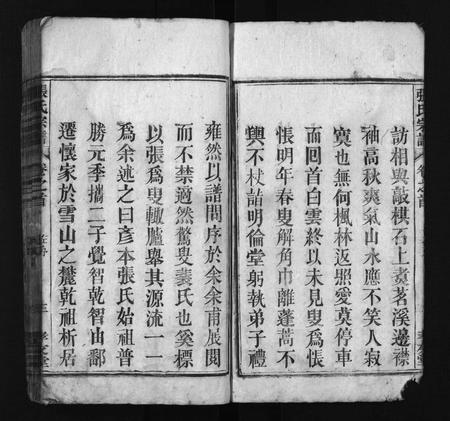 訪相與敲棋石上煑茗溪邊襟
袖高秋爽氣山水應不笑人寂
寞也無何楓林返照愛莫停車
而回首白雲終以未見叟爲悵
悵明年春叟解角巾離蓬蒿不
輿不杖詣明倫堂躬執弟子禮
雍然以譜問序於余余甫展閱
而不禁適然驚叟裴氏也奚標
以張爲叟輙臚舉其源流一一
爲余述之曰彦本張氏始祖普
勝元季攜二子覺智乾智山鄱
遷懷家於雪山之麓乾祖析居
張氏宗譜
卷之首
張氏宗譜
卷之首